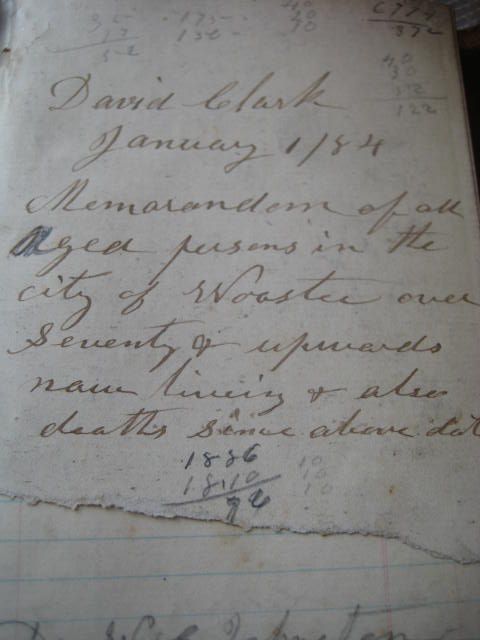 35 175 40
17 156 30
52 70
6774
372
40
30
12
122
David Clark
January 1/84
Memorandom of all
Aged persons in the
city of Wooster over
Seventy & upwards
now living & also
deaths since above dat
1886
1810
76
10
10
10
Johnston